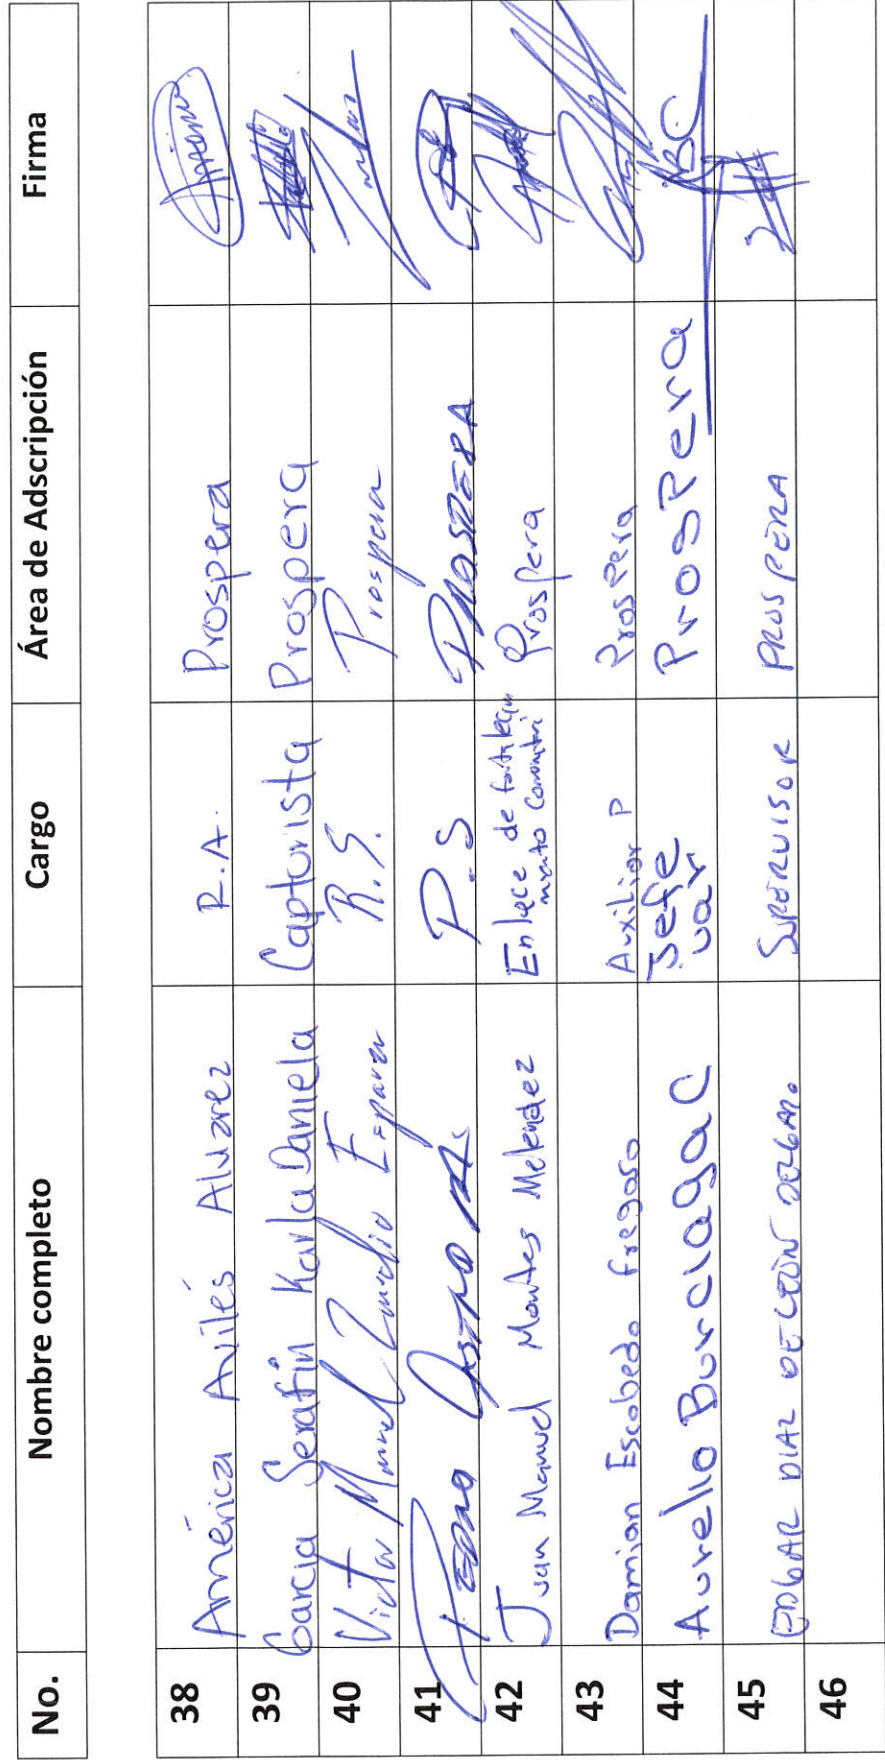 No. Nombre completo Cargo Área de Adscripción Firma
38 América Avilés Alvarez R.A. Prospera
39 Garcia Serafín Karla Daniela Capturista Prospera
40 Victor Manuel Zamudio Esparza R.S. Prospera
41 P.S PROSPERA
42 Juan Manuel Montes Melendez Enlace de fortaleci
miento Comunitari Prospera
43 Damian Escobedo Fregoso Auxiliar P Prospera
44 Aurelio Burciaga C Jefe
var Prospera ABC
45 EDGAR DIAZ DE LEÓN DELGADO. SUPERVISOR PROSPERA
46